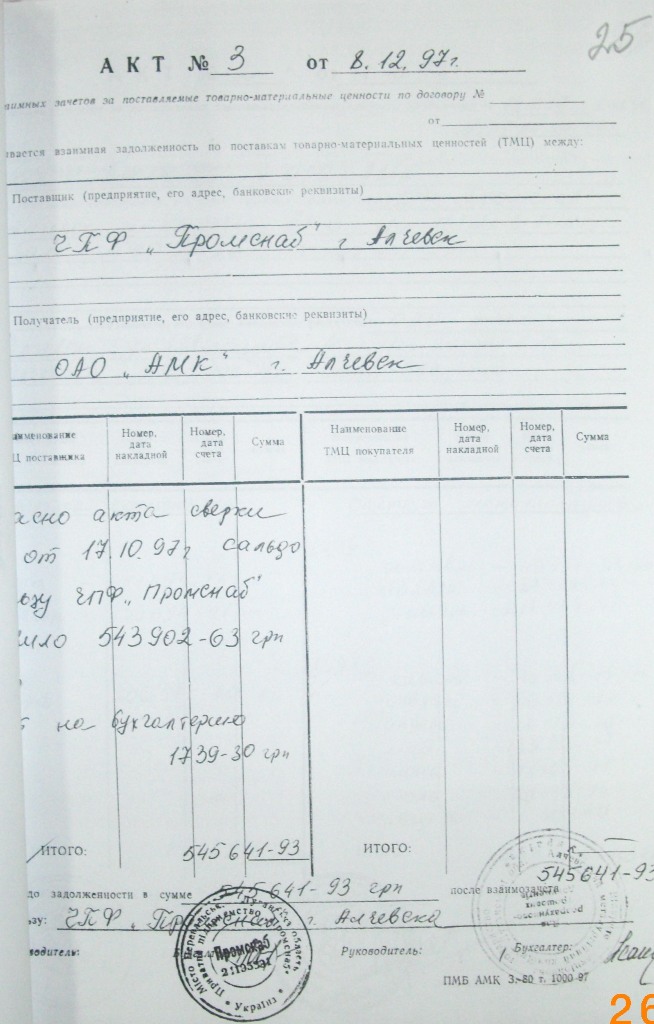 25
АКТ № 3 от 8.12.97г.
аимных зачетов за поставляемые товарно-материальные ценности по договору №
от
ивается взаимная задолженность по поставкам товарно-материальных ценностей (ТМЦ) между:
Поставщик (предприятие, его адрес, банковские реквизиты)
ЧПФ „Промснаб" г Алчевск
Получатель (предприятие, его адрес, банковские реквизиты)
ОАО „АМК" г. Алчевск
именование Номер, дата накладной Номер, дата счета Сумма Наименование Номер, дата накладной Номер, дата счета Сумма
Ц поставщика ТМЦ покупателя
асно акта сверки
от 17.10.97г сальдо
ьзу ЧПФ „Промснаб"
ило 543902-63 грн
на бухгалтерию
1739-30 грн
ИТОГО: 545641-93 ИТОГО:
545641-93
до задолженности в сумме 545641-93 грн после взаимозачета
зу: ЧПФ „Промснаб" г Алчевска
Промснаб
Україна
ководитель: Руководитель: Бухгалтер:
ПМБ АМК З.-80 т. 1000 97
26